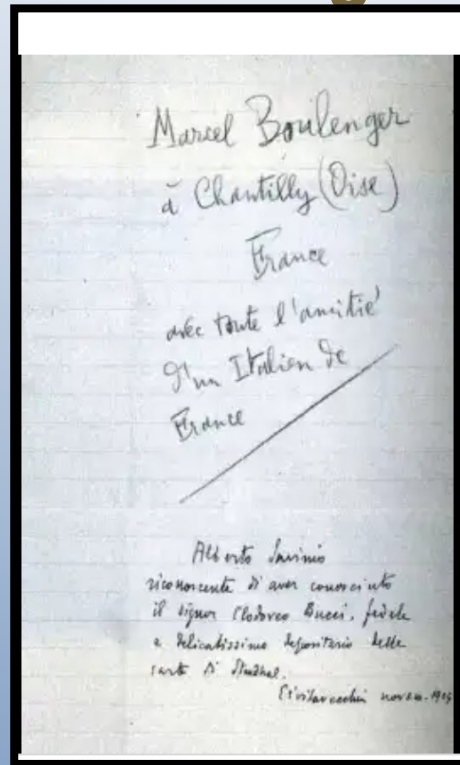 Marcel Boulenger
à Chantilly (Oise)
France
avec toute l'amitié
d'un Italien de
France
Alberto Savinio
riconoscente di aver conosciuto
il signor Clodoveo Bucci, fedele
e delicatissimo depositario delle
carte di Stendhal.
Civitavecchia novem.